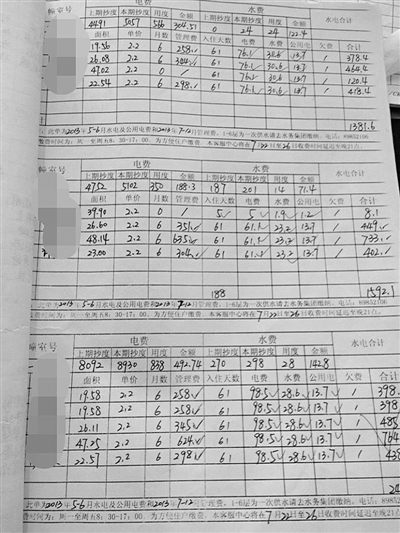 幢室号 电费 水费 水电合计
上期抄度 本期抄度 用度 金额 上期抄度 本期抄度 用度 金额
4491 5057 566 304.51 0 24 24 122.4
面积 单价 月数 管理费 入住天数 电费 水费 公用电 欠费 合计
19.56 2.2 6 258 61 76.1 30.6 13.7 / 378.4
26.08 2.2 6 344 61 76.1 30.6 13.7 / 464.4
47.02 2.2 0 / 61 76.1 30.6 13.7 / 120.4
22.54 2.2 6 298 61 76.1 30.6 13.7 / 418.4
1381.6
此单为2013年5-6月水电及公用电费和2013年7-12月管理费，1-6层为一次供水请去水务集团缴纳。电话：89852106
缴费时间为：周一至周五8：30-17：00，为方便住户缴费，本客服中心将在7月22日至26日收费时间延迟至晚21点。
幢室号 电费 水费 水电合计
上期抄度 本期抄度 用度 金额 上期抄度 本期抄度 用度 金额
4752 5102 350 188.3 187 201 14 71.4
面积 单价 月数 管理费 入住天数 电费 水费 公用电 欠费 合计
39.90 2.2 0 / 5 5 1.9 1.2 / 8.1
26.60 2.2 6 351 61 61.1 23.2 13.7 / 449
48.14 2.2 6 635 61 61.1 23.2 13.7 / 733
23.00 2.2 6 304 61 61.1 23.2 13.7 / 402
188 1592.1
此单为2013年5-6月水电及公用电费和2013年7-12月管理费，1-6层为一次供水请去水务集团缴纳。电话：89852106
缴费时间为：周一至周五8：30-17：00，为方便住户缴费，本客服中心将在7月22日至26日收费时间延迟至晚21点。
幢室号 电费 水费 水电合计
上期抄度 本期抄度 用度 金额 上期抄度 本期抄度 用度 金额
8092 8930 838 492.74 270 298 28 142.8
面积 单价 月数 管理费 入住天数 电费 水费 公用电 欠费 合计
19.58 2.2 6 258 61 98.5 28.6 13.7 / 398
19.58 2.2 6 258 61 98.5 28.6 13.7 / 398
26.11 2.2 6 345 61 98.5 28.6 13.7 / 485
47.25 2.2 6 624 61 98.5 28.6 13.7 / 764
22.57 2.2 6 298 61 98.5 28.6 13.7 / 438
24
此单为2013年5-6月水电及公用电费和2013年7-12月管理费，1-6层为一次供水请去水务集团缴纳。电话：89852
缴费时间为：周一至周五8：30-17：00，为方便住户缴费，本客服中心将在7月22日至26日收费时间延迟至晚21点